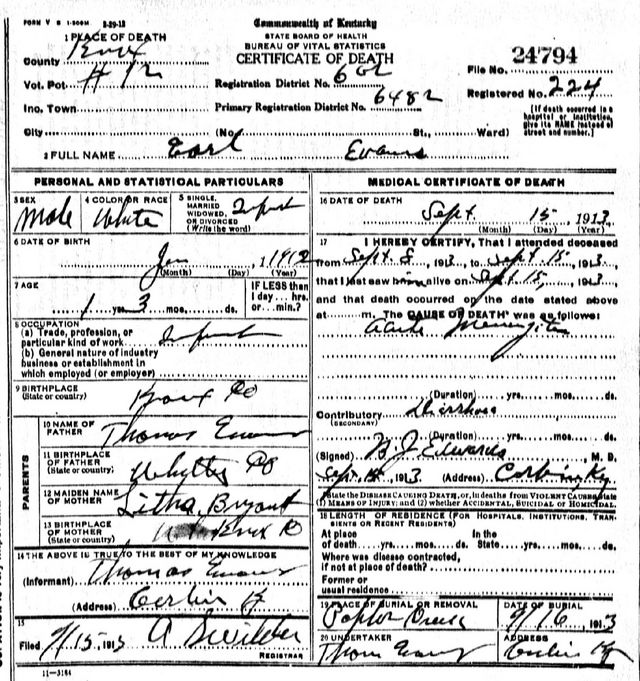 FORM V S 1-500M 3-29-12
Commonwealth of Kentucky
STATE BOARD OF HEALTH
BUREAU OF VITAL STATISTICS
CERTIFICATE OF DEATH
1 PLACE OF DEATH
County Knox
Vot. Pct. #12
Inc. Town
City (No. St., Ward)
Registration District No. 602
Primary Registration District No. 6482
24794
File No.
Registered No. 224
[If death occurred in a hospital or institution, give its NAME instead of street and number.]
2 FULL NAME Earl Evans
PERSONAL AND STATISTICAL PARTICULARS
3 SEX Male
4 COLOR OR RACE White
5 SINGLE, MARRIED WIDOWED, OR DIVORCED (Write the word) Infant
6 DATE OF BIRTH
Jun 1912
(Month) (Day) (Year)
7 AGE
1 yrs. 3 mos. ds.
IF LESS than 1 day... hrs. or... min.?
8 OCCUPATION
(a) Trade, profession, or particular kind of work Infant
(b) General nature of industry business or establishment in which employed (or employer)
9 BIRTHPLACE (State or country) Knox Co
PARENTS
10 NAME OF FATHER Thomas Evans
11 BIRTHPLACE OF FATHER (State or country) Whitley Co
12 MAIDEN NAME OF MOTHER Litha Bryant
13 BIRTHPLACE OF MOTHER (State or country) Knox Co
14 THE ABOVE IS TRUE TO THE BEST OF MY KNOWLEDGE
(Informant) Thomas Evans
(Address) Corbin Ky
15
Filed 9/15 1913
REGISTRAR
11-3184
MEDICAL CERTIFICATE OF DEATH
16 DATE OF DEATH
Sept. 15, 1913
(Month) (Day) (Year)
17 I HEREBY CERTIFY, That I attended deceased
from Sept. 8, 1913, to Sept. 15, 1913,
that I last saw him alive on Sept 15, 1913
and that death occurred on the date stated above
at m. The CAUSE OF DEATH was as follows:
Acute Meningitis
(Duration) yrs. mos. ds.
Contributory (SECONDARY) Diarrhoea
(Duration) yrs. mos. ds.
(Signed) B. J. Edwards, M. D.
Sept. 1913 (Address) Corbin, Ky
State the DISEASE CAUSING DEATH, or, in deaths from VIOLENT CAUSES, state (1) MEANS OF INJURY; and (2) whether ACCIDENTAL, SUICIDAL or HOMICIDAL.
18 LENGTH OF RESIDENCE (FOR HOSPITALS, INSTITUTIONS, TRANSIENTS OR RECENT RESIDENTS)
At place of death yrs. mos. ds. In the State yrs. mos. ds.
Where was disease contracted, if not at place of death?
Former or usual residence
19 PLACE OF BURIAL OR REMOVAL Poplar Creek
DATE OF BURIAL 9/16 1913
20 UNDERTAKER Thom Evans
ADDRESS Corbin Ky